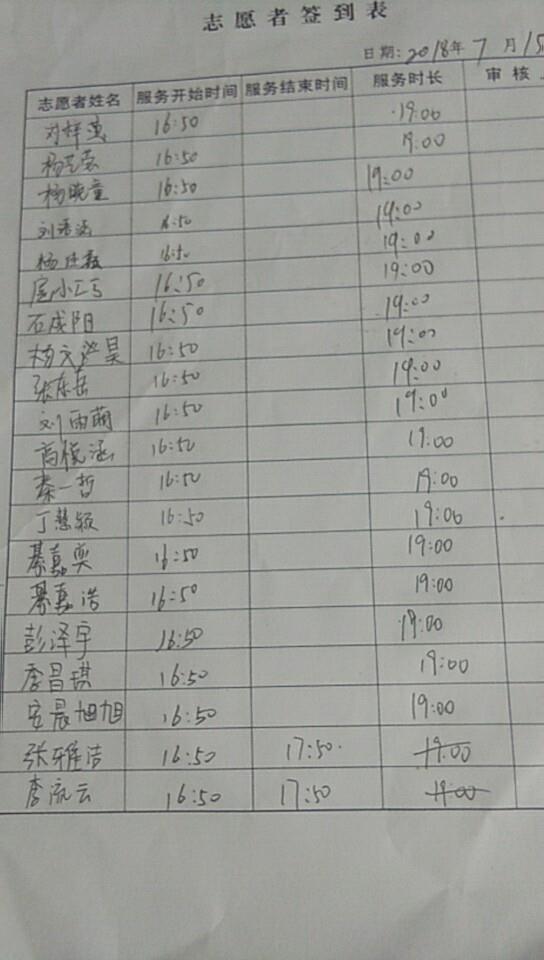 志愿者签到表
日期: 2018年7月15
志愿者姓名 服务开始时间 服务结束时间 服务时长 审核
刘梓萱 16:50 19:00
16:50 19:00
杨晓童 16:50 19:00
刘语涵 16:50 19:00
16:50 19:00
16:50 19:00
石成阳 16:50 19:00
杨文澄昊 16:50 19:00
张东岳 16:50 19:00
刘雨萌 16:50 19:00
高悦涵 16:50 19:00
秦一哲 16:50 19:00
丁慧颖 16:50 19:00
綦嘉奥 16:50 19:00
綦嘉浩 16:50 19:00
彭泽宇 16:50 19:00
李昌琪 16:50 19:00
安晨旭旭 16:50 19:00
张雅洁 16:50 17:50 19:00
李流云 16:50 17:50 19:00